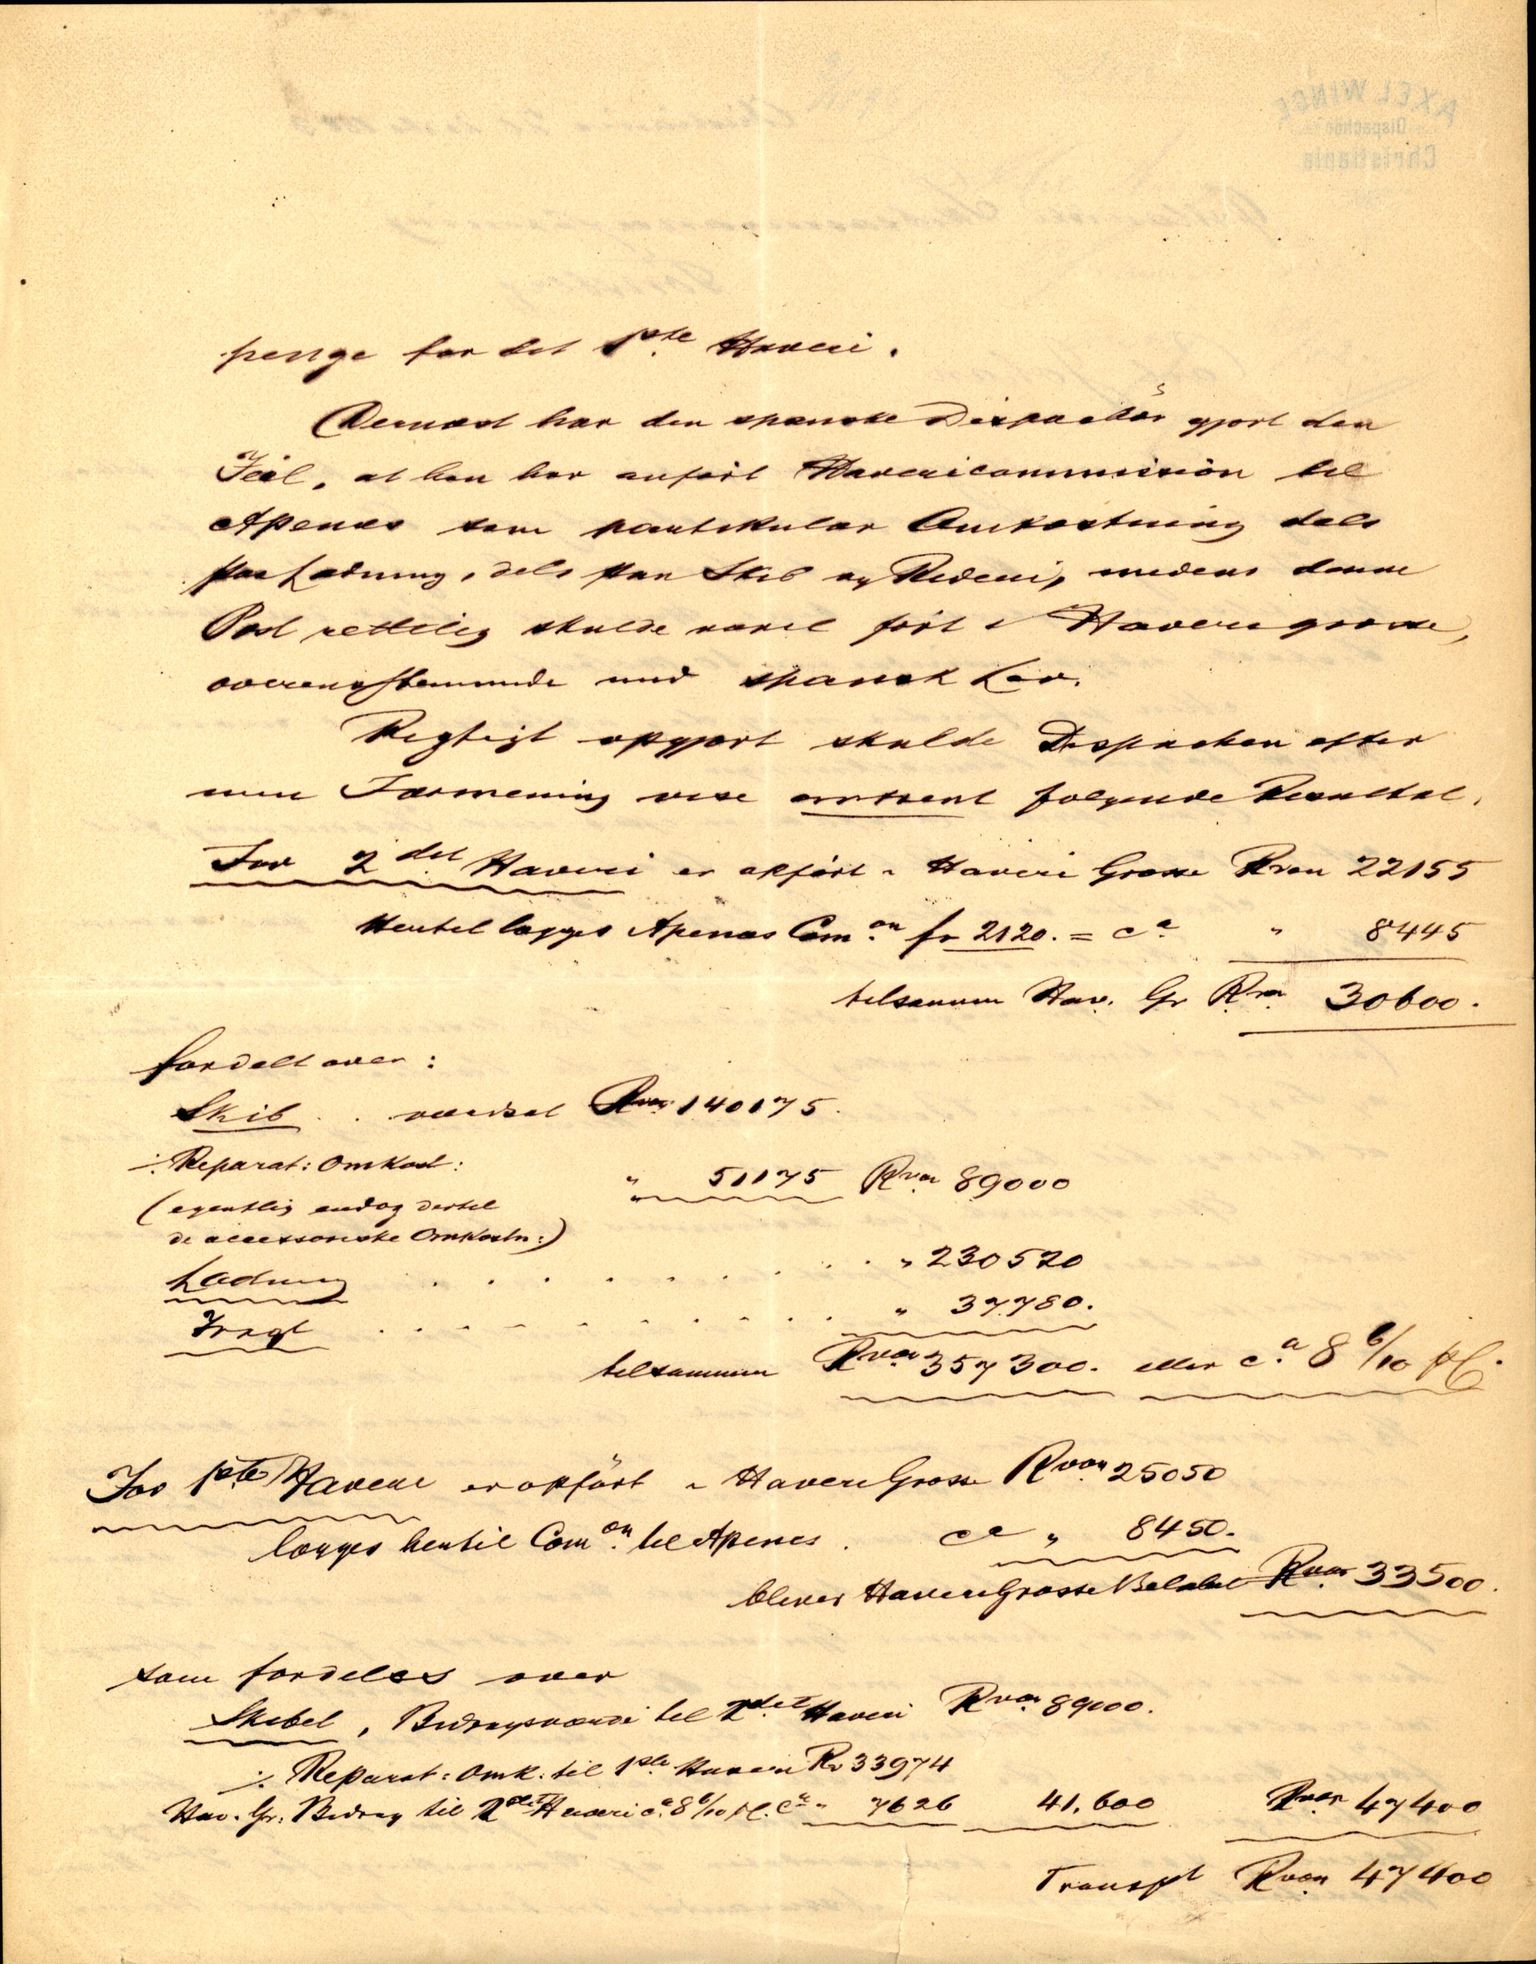 penge for det 1ste Haveri.
Dernæst har den spanske Dispachör gjort den
Feil, at han har anført Havericommission til
Apenes som partikulær Omkostning dels
paa Ladning, dels paa Skib og Rederi, medens denne
Post rettelig skulde været ført i Haveri grosse,
overensstemmende med spansk Lov.
Rigtigt opgjort skulde Dispachen efter
min Formening vise omtrent følgende Resultat.
For 2det Haveri er opført i Haveri Grosse Rvon 22155
Hertil lægges Apenes Comon fr 2120. = ca " 8445
tilsammen Hav. Gr Rvon 30600.
fordelt over:
Skib . . værdsat Rvon 140175.
÷ Reparat: Omkost: " 51175 Rvon 89000
(egentlig endog dertil
de accessoriske Omkostn:)
Ladning . . . . . . . . . " 230520
Fragt . . . . . . . . . " 37780.
tilsammen Rvon 357300. eller ca 8 6/10 pC.
For 1ste Haveri er opført i Haveri Grosse Rvon 25050
lægges hertil Comon til Apenes . ca " 8450.
bliver Haveri Grosse Beløbet Rvon 33500.
som fordeles over
Skibet, Bidragsværdi til 2det Haveri Rvon 89000.
÷ Reparat: Omk. til 1ste Haveri Rv 33974
Hav. Gr. Bidrag til 2det Haveri ca 8 6/10 pC. ca " 7626 41.600 Rvon 47400
Transpt Rvon 47400